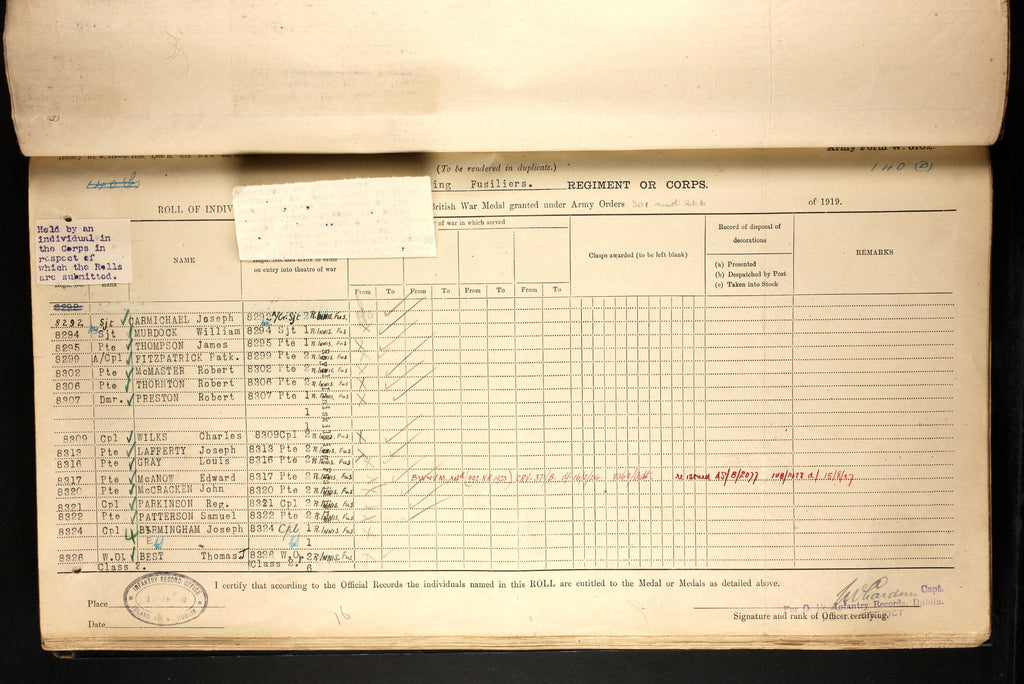 140 (B)
(To be rendered in duplicate.)
ing Fusiliers. REGIMENT OR CORPS.
ROLL OF INDIV British War Medal granted under Army Orders 301 and 266 of 1919.
Held by an
individual in
the Corps in
respect of
which the Rolls
are submitted.
Rank
NAME
on entry into theatre of war
of war in which served
From To From To From To From To
Clasps awarded (to be left blank)
Record of disposal of
decorations
(a) Presented
(b) Despatched by Post
(c) Taken into Stock
REMARKS
8292
8292 Sjt CARMICHAEL Joseph 8292 Sjt 2 R. Innis. Fus.
8294 Sjt MURDOCK William 8294 Sjt 1 R. Innis. Fus
8295 Pte THOMPSON James 8295 Pte 1 R. Innis. Fus
8299 A/Cpl FITZPATRICK Patk. 8299 Pte 2 R. Innis. Fus
8302 Pte McMASTER Robert 8302 Pte 2 R. Innis. Fus
8306 Pte THORNTON Robert 8306 Pte 2 R. Innis. Fus
8307 Dmr. PRESTON Robert 8307 Pte 1 R. Innis. Fus
1
1
8309 Cpl WILKS Charles 8309 Cpl 2 R. Innis. Fus
8313 Pte LAFFERTY Joseph 8313 Pte 2 R. Innis. Fus
8316 Pte GRAY Louis 8316 Pte 2 R. Innis. Fus
8317 Pte McANOW Edward 8317 Pte 2 R. Innis. Fus re issued 15/8/27
8320 Pte McCRACKEN John 8320 Pte 2 R. Innis. Fus
8321 Cpl PARKINSON Reg. 8321 Cpl 2 R. Innis. Fus
8322 Pte PATTERSON Samuel 8322 Pte 2 R. Innis. Fus
8324 Cpl BIRMINGHAM Joseph 8324 Cpl 1 R. Innis. Fus
E 1
8326 W.O1 BEST Thomas J 8326 W.O. 2 R. Innis. Fus
Class 2. Class 2. 6
I certify that according to the Official Records the individuals named in this ROLL are entitled to the Medal or Medals as detailed above.
INFANTRY RECORD OFFICE
DUBLIN
Place
Date
16
Capt.
For O. i/c. Infantry Records, Dublin.
Signature and rank of Officer certifying.